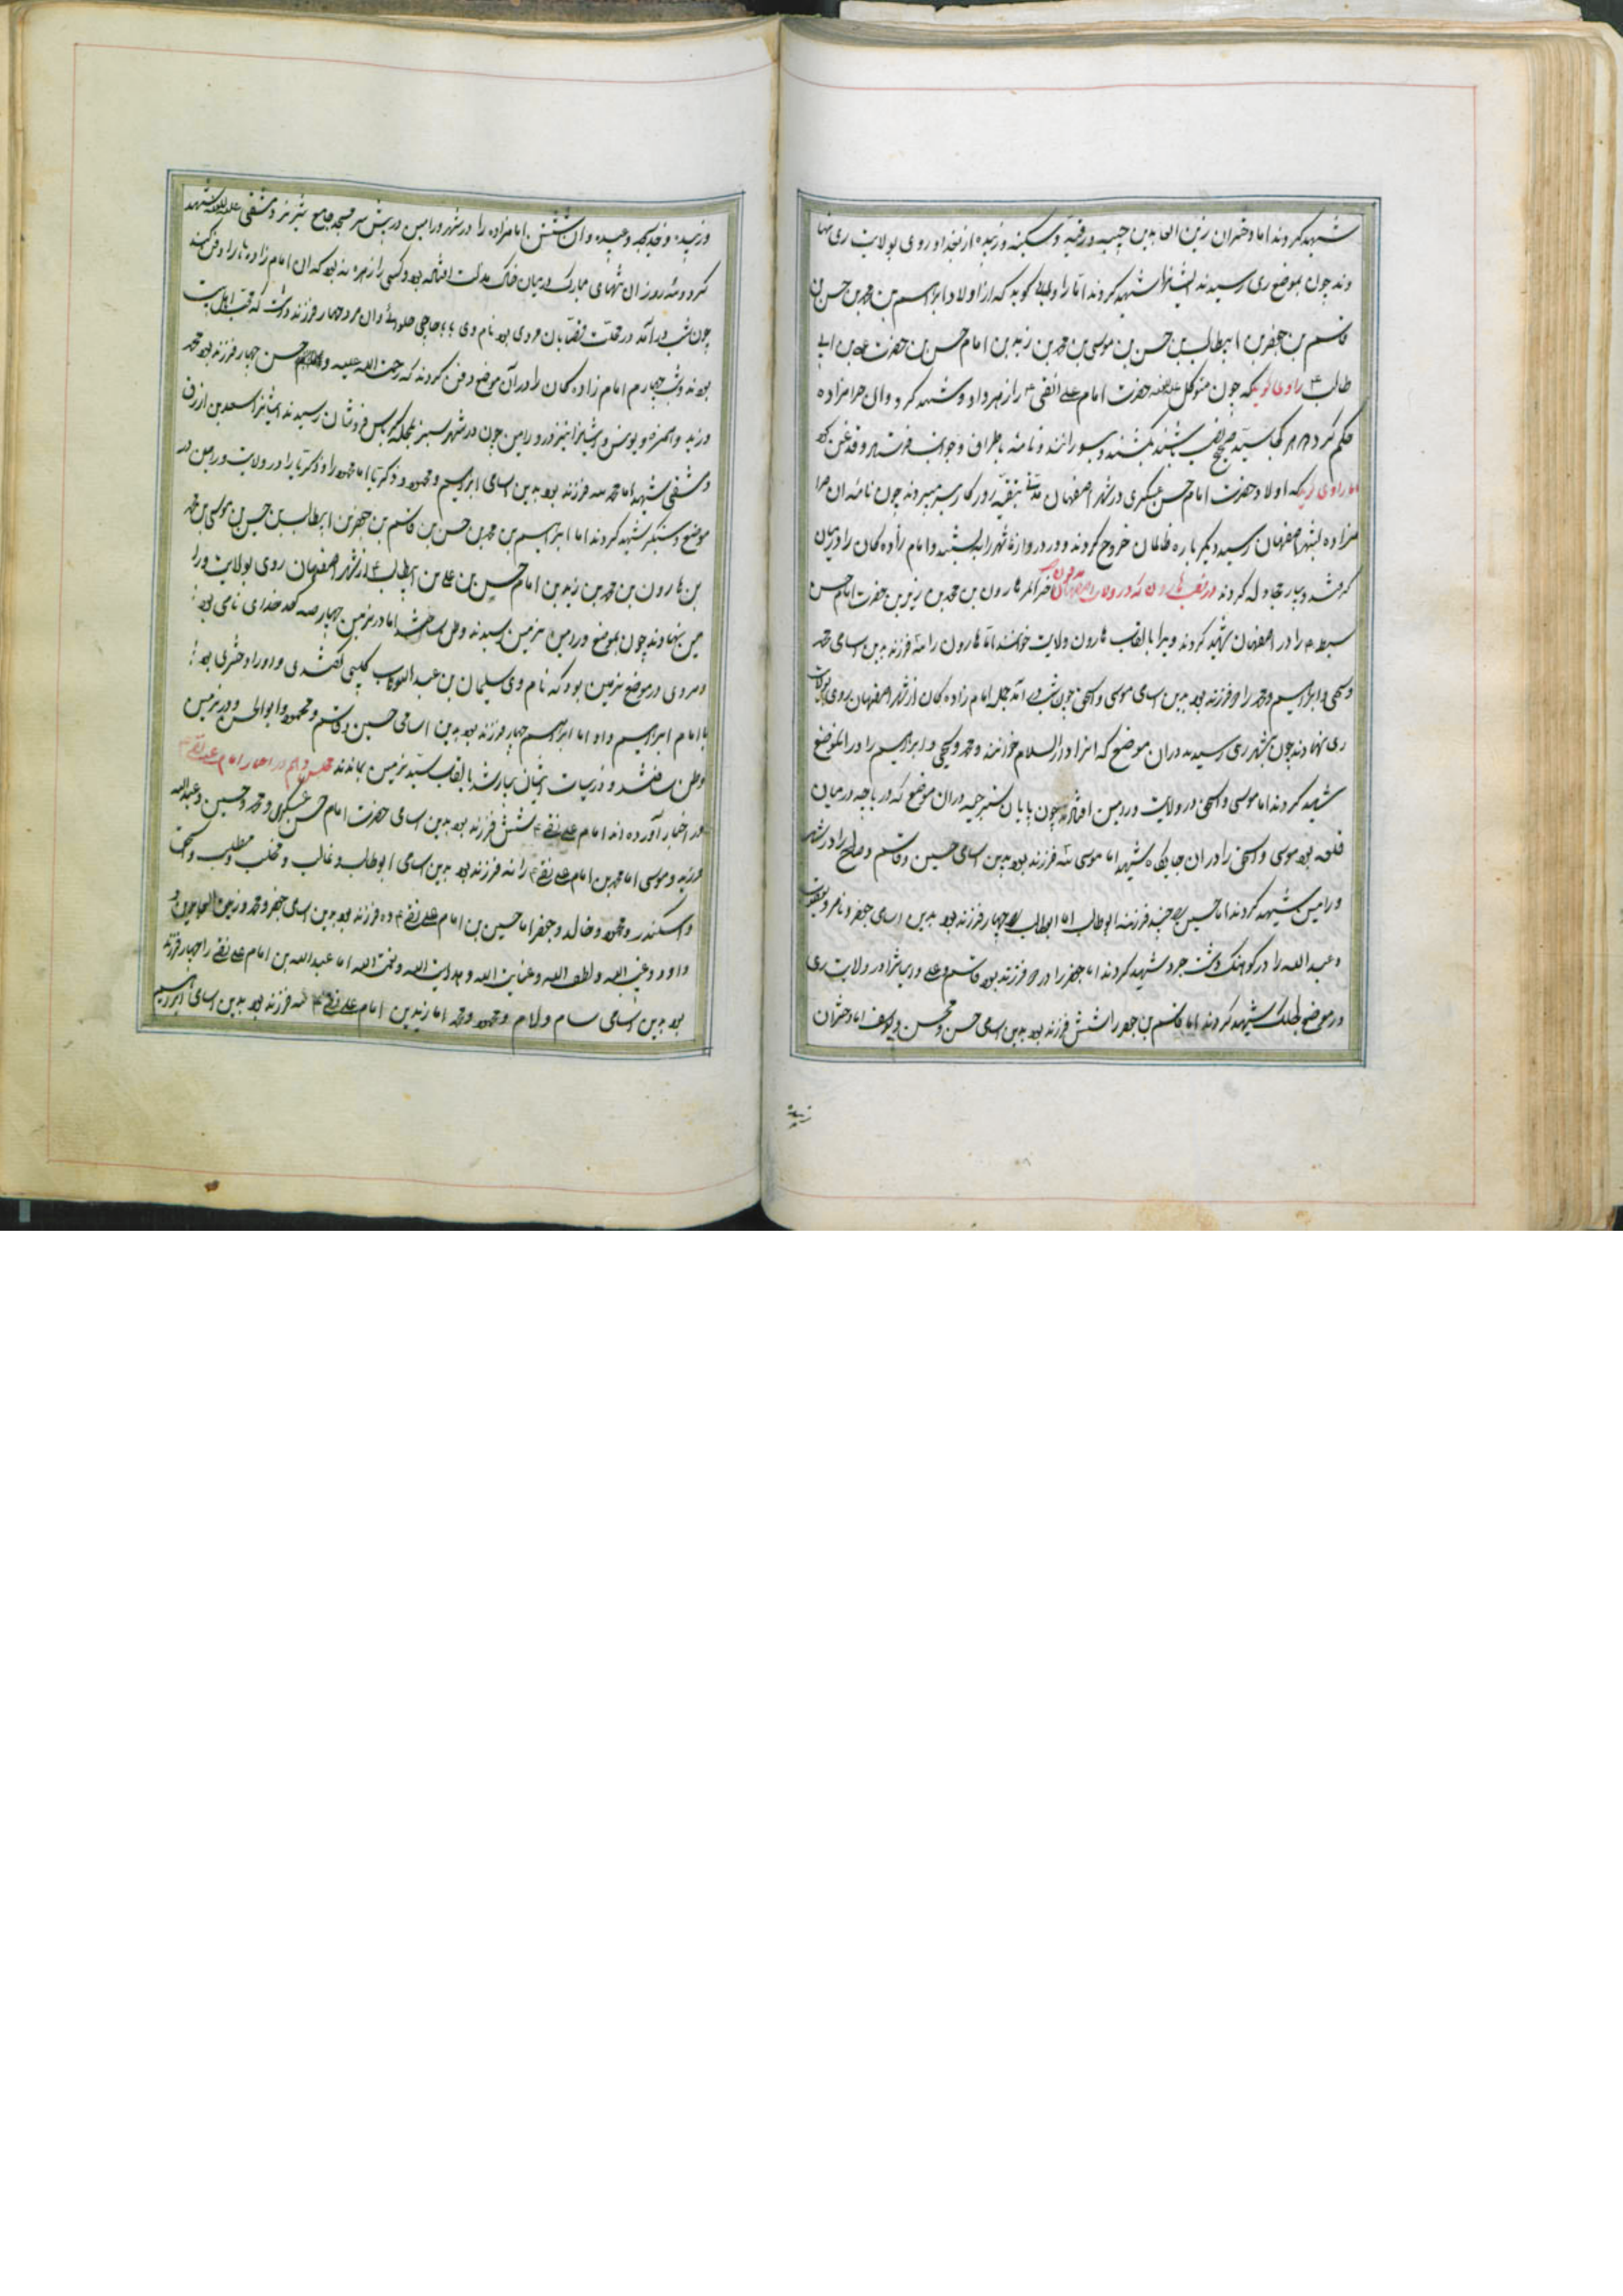 شهید کردند اما دختران زین العابدین حبیبه و رقیه و سکینه و زبیده از بغداد روی بولایت ری نها
وند چون بموضع ری رسیدند ایشانرا شهید کردند اما راوی گوید که از اولاد ابراهیم بن محمد بن حسن بن
قاسم بن جعفر بن ابیطالب بن حسن بن موسی بن محمد بن زید بن امام حسن بن حضرت علی بن ابی
طالب ع راوی گوید که چون متوکل حضرت امام علی النقی ع را زهر داد و شهید کرد و ان حرامزاده
حکم کرد که هر کجا سید صحیح نسب باشند بکشند و بسوزانند و نامه باطراف و جوانب فرستاد و قدغن کرد
اما راوی گوید که اولاد حضرت امام حسن عسکری در شهر اصفهان مدتی بتقیه روزگار بسر میبردند چون نامه ان حرا
مزاده بشهر اصفهان رسید دیگر باره ظالمان خروج کردند و در دروازهای شهر را ببستند و امام زاده کان را در میان
گرفتند و بسیار مجادله کردند هارون که در ولایت اصفهان مدفون هارون بن محمد بن زید بن حضرت امام حسن
سبط ع را در اصفهان شهید کردند و ویرا بالقاب هارون ولایت خوانند اما هارون را سه فرزند بود بدین اسامی محمد
و یحیی و ابراهیم و محمد را دو فرزند بود بدین اسامی موسی و اسحق چون شب در آمد جمله امام زاده کان از شهر اصفهان روی بولایت
ری نهادند چون بشهر ری رسیدند در ان موضع که انرا دارالسلام خوانند و محمد و یحیی و ابراهیم را در انموضع
شهید کردند اما موسی و اسحق در ولایت ورامین افتادند چون بپایان در ان موضع که در باجه در میان
قلعه بود موسی و اسحق را در ان جایگاه شهید اما موسی سه فرزند بود بدین اسامی حسین و قاسم و صالح را در شهر
ورامین شهید کردند اما حسین فرزند ابوطالب اما ابوطالب چهار فرزند بود بدین اسامی جعفر و ناصر و یعقوب
و عبد الله را در شهید کردند اما جعفر را دو فرزند بود قاسم و علی و ایشانرا در ولایت ری
در موضع شهید کردند اما قاسم بن جعفر را شش فرزند بود بدین اسامی حسن و محسن و یوسف اما دختران
زبیده
و زبیده و خدیجه و عبیده و ان شش امامزاده را در شهر ورامین در پیش سر مسجد جامع دمشقی شهید
کرد و سه روز ان تنهای مبارک در میان خاک مذلت افتاده بود و کسی را زهره نبود که ان امام زاده ها را دفن کند
چون شب در آمد در محلت قصابان مردی بود نام وی باباحاجی حلوائی و ان مرد چهار فرزند داشت که محب اهل بیت
بودند و شب چهارم امام زاده کان را در آن موضع دفن کردند که رحمت الله علیه حسن چهار فرزند بود محمد
و زید و حمزه و یونس و ایشانرا نیز در ورامین چون در شهر سبز بمحله کرباس فروشان رسیدند ایشانرا سعد بن ازرق
دمشقی شهید اما محمد سه فرزند بود بدین اسامی ابراهیم و محمود و ذکریا اما محمود را و ذکریا را در ولایت ورامین در
موضع شهید کردند اما ابراهیم بن محمد بن حسن بن قاسم بن جعفر بن ابیطالب بن حسین بن موسی بن محمد
بن هارون بن محمد بن زید بن امام حسن بن علی بن ابیطالب ع از شهر اصفهان روی بولایت ورا
مین نهادند چون بموضع ورامین نرمین رسیدند وطن ساختند اما در نرمین چهار صد کدخدای نامی بود
و مردی در موضع نرمین بود که نام وی سلیمان بن عبد الوهاب گفتندی و او را دختری بود
با امام ابراهیم داد اما ابراهیم چهار فرزند بود بدین اسامی حسین و قاسم و محمود و ابوالحسن و در نرمین
وطن ساختند و ذریات ایشان بسیار شد بالقاب سید نرمین بماندند در اخبار امام علی نقی ع
در اخبار آورده اند امام علی نقی ع شش فرزند بود بدین اسامی حضرت امام حسن عسکری و محمد و حسین و عبدالله
و زید و موسی اما محمد بن امام علی نقی ع را نه فرزند بود بدین اسامی ابوطالب و غالب و مطلب و اسحق
و اسکندر و محمود و خالد و جعفر اما حسین بن امام علی نقی ع ده فرزند بود بدین اسامی جعفر و محمد و زین العابدین و
داود و عبد الله و لطف الله و عنایت الله و هدایت الله و نعمت الله اما عبدالله بن امام علی نقی را چهار فرزند
بود بدین اسامی سام و لام و محمود و محمد اما زید بن امام علی نقی ع سه فرزند بود بدین اسامی ابراهیم